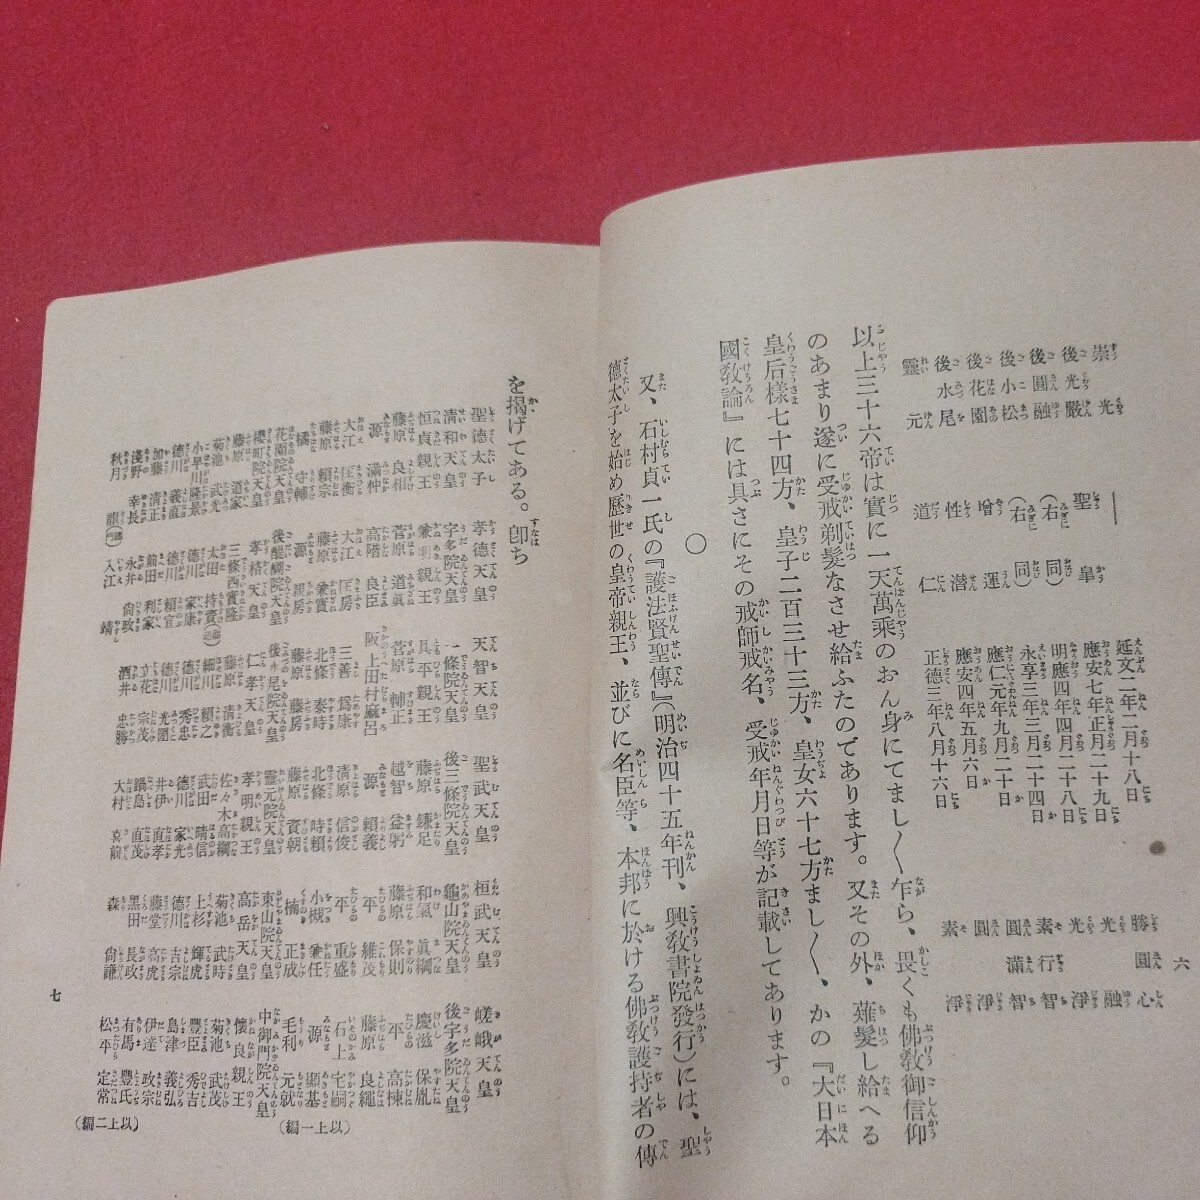 崇光 聖皐 延文二年二月十八日 勝圓心
後光嚴 (右同) 應安七年正月二十九日 光融
後圓融 (右同) 明應四年四月二十八日 光淨
後小松 增運 永享三年三月二十四日 素行智
後花園 性潜 應仁元年九月二十日 圓滿智
後水尾 應安四年五月六日 圓淨
靈元 道仁 正德三年八月十六日 素淨
以上三十六帝は實に一天萬乘のおん身にてまし〱乍ら、畏くも佛敎御信仰
のあまり遂に受戒剃髮なさせ給ふたのであります。又その外、薙髮し給へる
皇后樣七十四方、皇子二百三十三方、皇女六十七方まし〱、かの『大日本
國敎論』には具さにその戒師戒名、受戒年月日等が記載してあります。
〇
又、石村貞一氏の『護法賢聖傳』(明治四十五年刊、興敎書院發行)には、聖
德太子を始め歷世の皇帝親王、並びに名臣等、本邦に於ける佛敎護持者の傳
六
を揭げてある。卽ち
聖德太子 孝德天皇 天智天皇 聖武天皇 桓武天皇 嵯峨天皇
淸和天皇 宇多院天皇 一條院天皇 後三條院天皇 龜山院天皇 後宇多院天皇
恒貞親王 兼明親王 具平親王 藤原鎌足 和氣眞綱 慶滋保胤
藤原良相 菅原道眞 菅原輔正 越智益躬 藤原保則 平高棟
源滿仲 高階良臣 阪上田村麻呂 源賴義 平維茂 藤原良繩
大江匡衡 大江匡房 三善爲康 淸原信俊 平重盛 石上宅嗣
藤原賴宗 藤原兼實 北條泰時 北條時賴 小槻兼任 源顯基
橘守輔 源親房 藤原藤房 藤原資朝 楠正成 毛利元就 (以上一編)
花園院天皇 後醍醐院天皇 後水尾院天皇 靈元院天皇 東山院天皇 中御門院天皇
櫻町院天皇 孝格天皇 仁孝天皇 孝明親王 高岳天皇 懷良親王
藤原道家 三條西實隆 藤原淸衡 佐々木高綱 菊池武時 菊池武茂
菊池武光 太田持資 細川賴之 武田晴信 上杉輝虎 豐臣秀吉
小早川隆景 德川家康 德川秀忠 德川家光 德川吉宗 島津義弘
德川義直 德川賴宣 德川光圀 井伊直孝 藤堂高虎 伊達政宗
加藤淸正 前田利家 立花宗茂 鍋島直茂 黑田長政 有馬豐氏
淺野幸長 永井尙政 酒井忠勝 大村喜前 森尙謙 松平定常
秋月龍 入江靖 (以上二編)
七